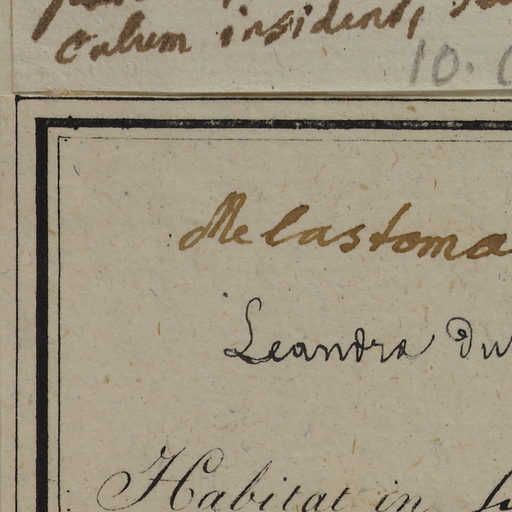 culum insident,
10.
Melastoma
Leandra
Habitat in